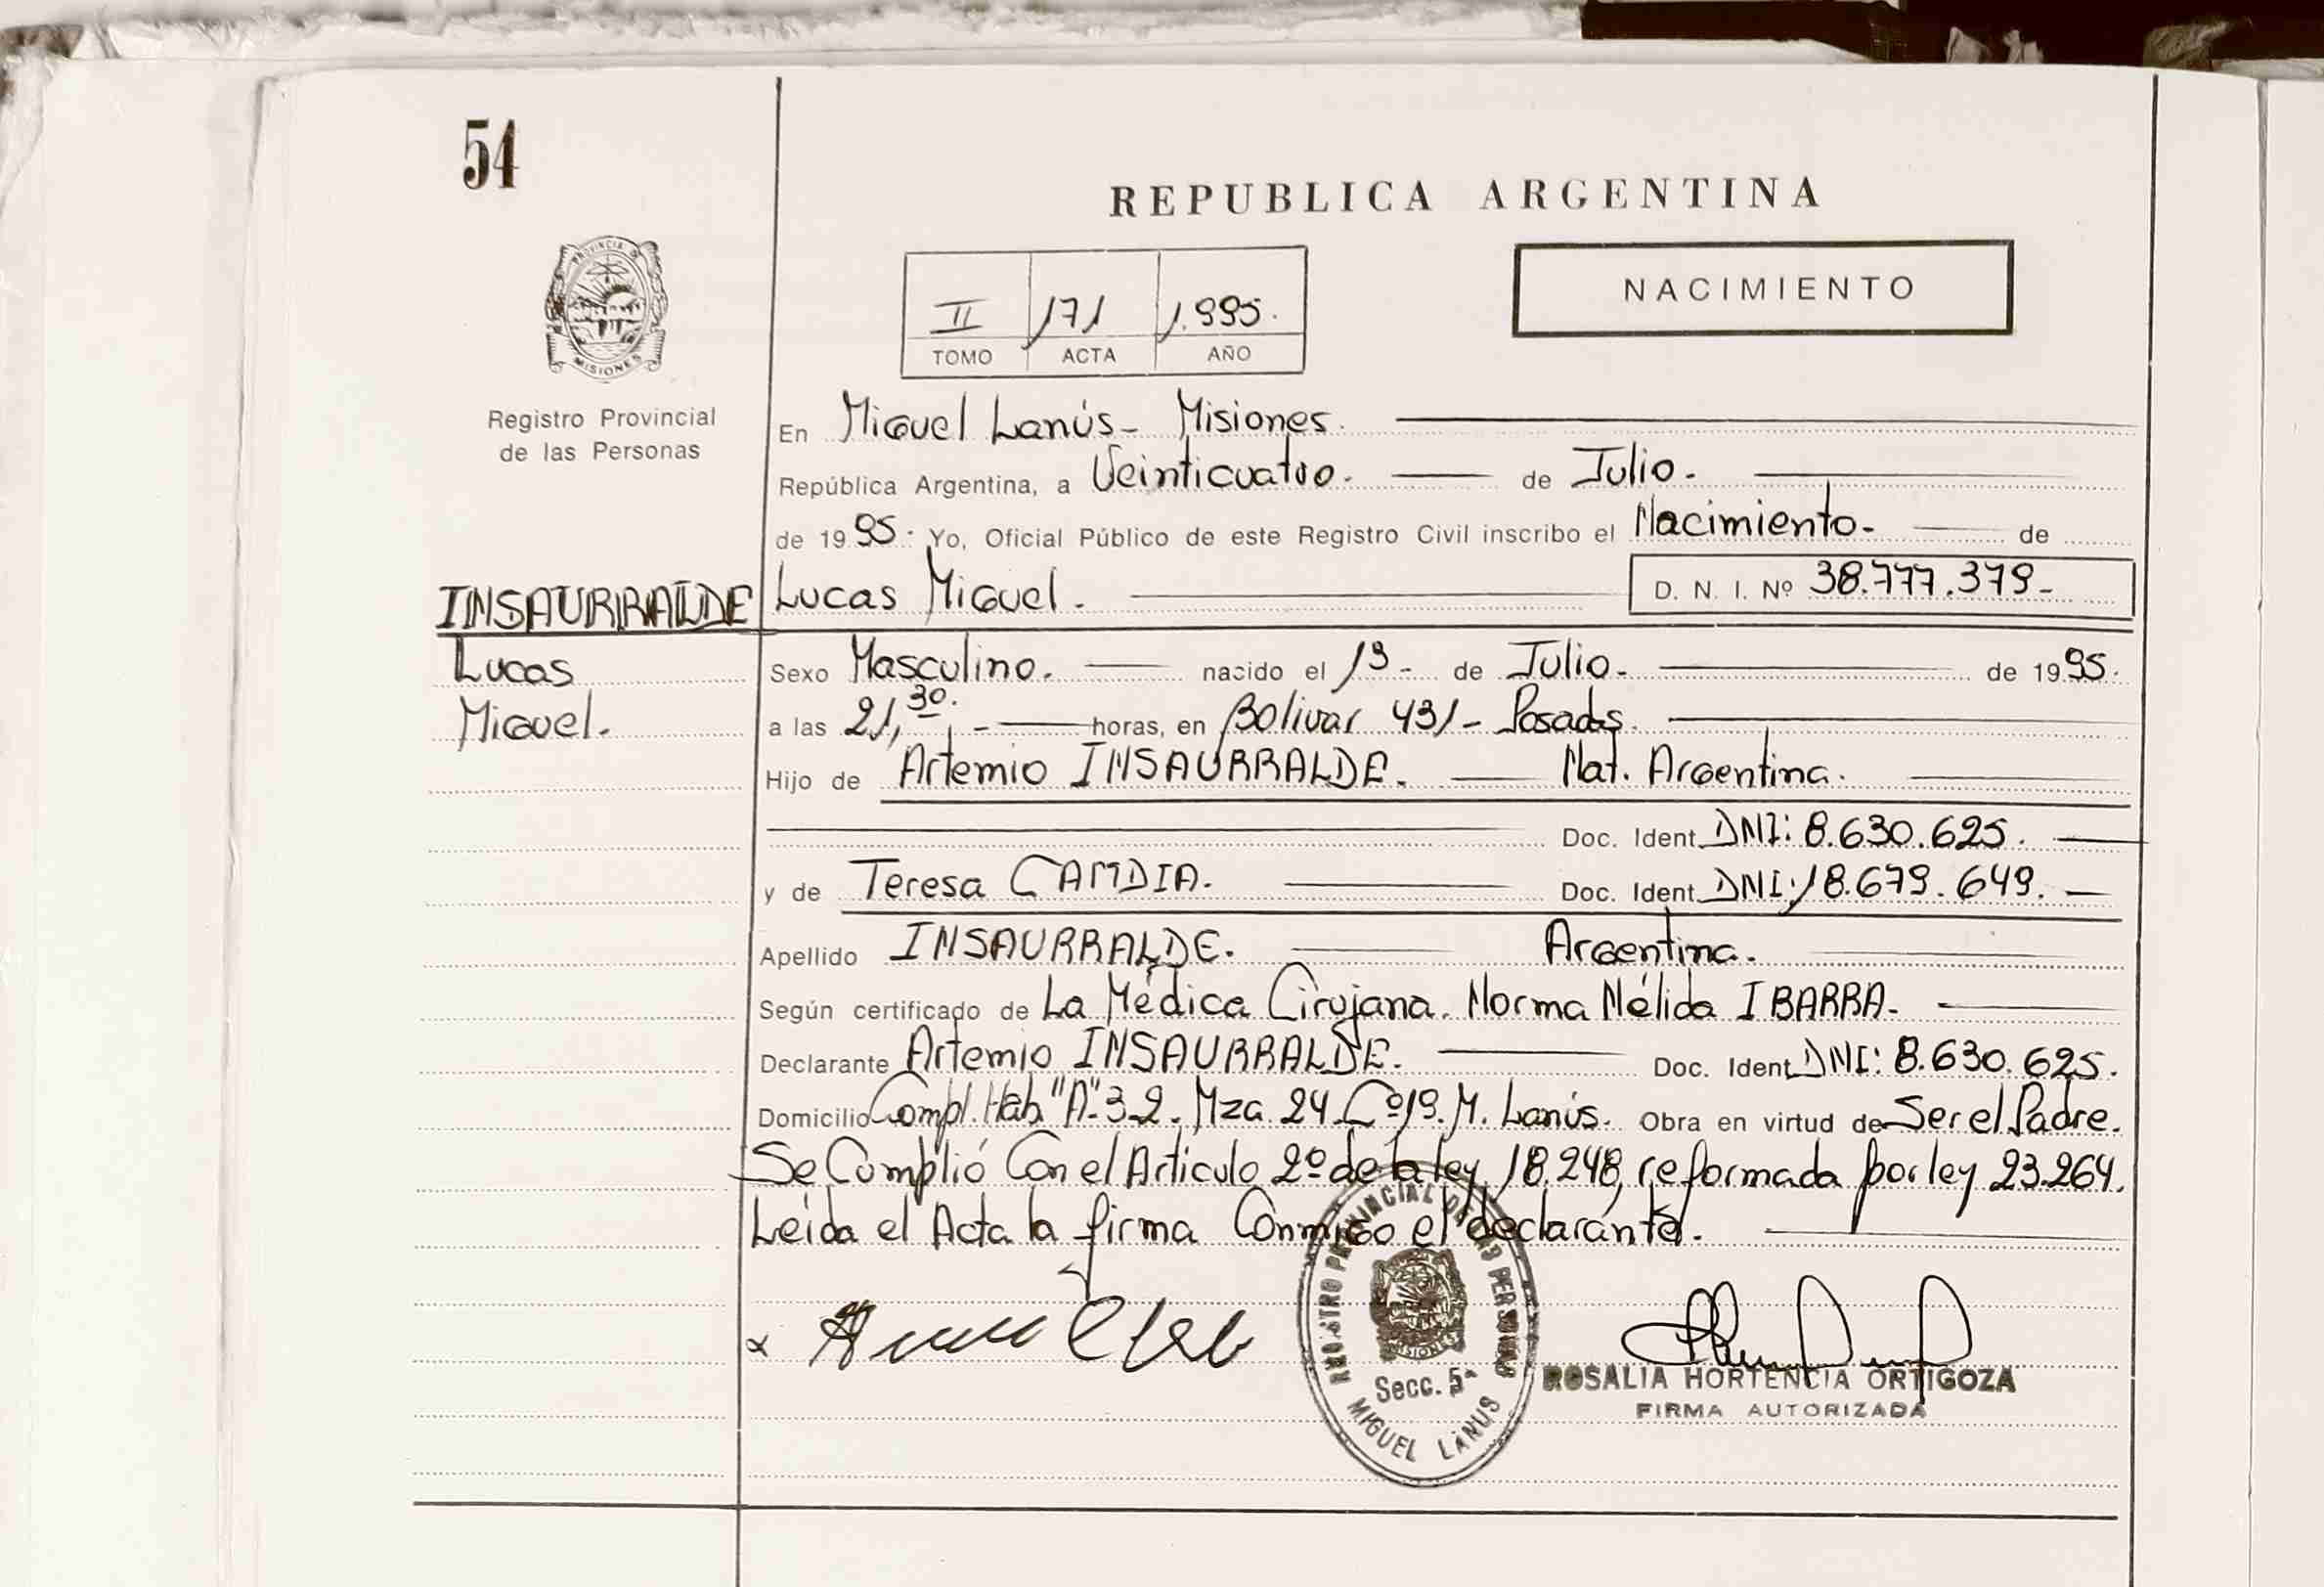 54
REPUBLICA ARGENTINA
PROVINCIA DE MISIONES
II 171 1.995.
TOMO ACTA AÑO
NACIMIENTO
Registro Provincial
de las Personas
En Miguel Lanús - Misiones.
República Argentina, a Veinticuatro. de Julio.
de 19 95. Yo, Oficial Público de este Registro Civil inscribo el Nacimiento- de
INSAURRALDE Lucas Miguel. D. N. I. Nº 38.777.379-
Lucas
Miguel.
Sexo Masculino. nacido el 19- de Julio. de 19 95.
a las 21,30. horas, en Bolivar 431- Posadas.
Hijo de Artemio INSAURRALDE. Nat. Argentina.
Doc. Ident. DNI: 8.630.625.
y de Teresa CANDIA. Doc. Ident. DNI: 18.679.649.
Apellido INSAURRALDE. Argentina.
Según certificado de La Médica Cirujana. Norma Nélida IBARRA.
Declarante Artemio INSAURRALDE. Doc. Ident. DNI: 8.630.625.
Domicilio Compl. Hab. "A"-3-2. Mza. 24. Cº 19. M. Lanús. Obra en virtud de Ser el Padre.
Se Cumplió Con el Articulo 2º de la ley 18.248, reformada por ley 23.264.
Leída el Acta la firma Conmigo el declarante.
REGISTRO PROVINCIAL DE LAS PERSONAS
MISIONES
Secc. 5ª
MIGUEL LANUS
ROSALIA HORTENCIA ORTIGOZA
FIRMA AUTORIZADA